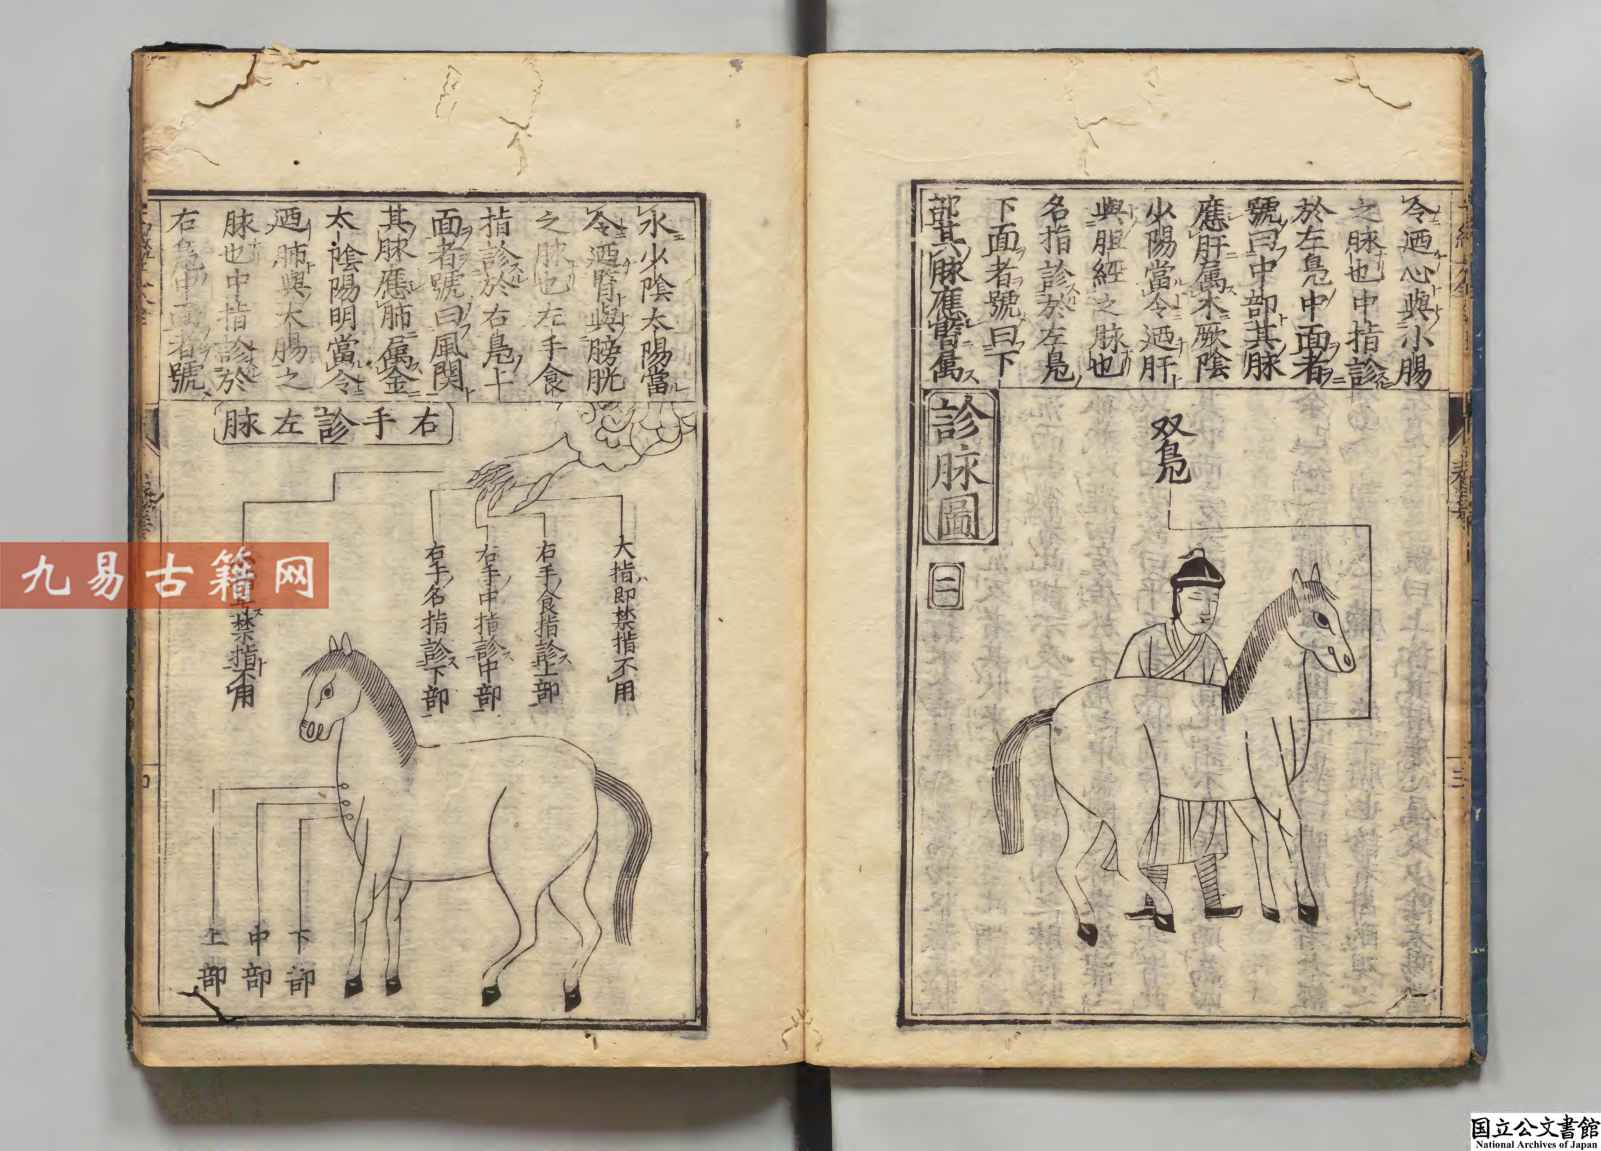 令迺心與小腸
之脉也中指診
於左鳧中面者
號曰中部其脉
應肝属木厥陰
少陽當令迺肝
與胆經之脉也
名指診於左鳧
下面者號曰下
部其脉應腎属
診脉圖
二
双鳧
三
水少陰太陽當
令迺腎與膀胱
之脉也左手食
指診於右鳧上
面者號曰風関
其脉應肺属金
太陰陽明當令
迺肺與大腸之
脉也中指診於
右鳧中面者號
右手診左脉
大指即禁指不用
右手食指診上部
右手中指診中部
右手名指診下部
禁指不用
下部
中部
上部
九易古籍网
国立公文書館
National Archives of Japan